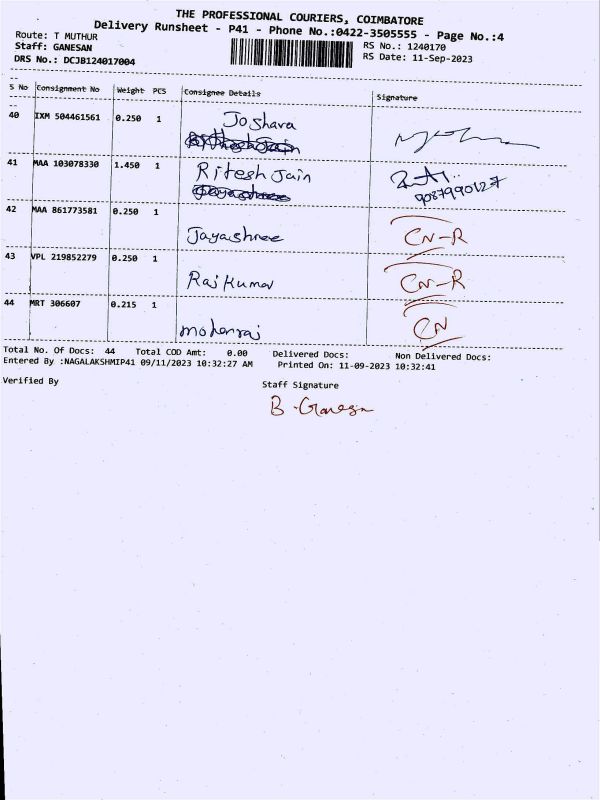 THE PROFESSIONAL COURIERS, COIMBATORE
Delivery Runsheet - P41 - Phone No.:0422-3505555 - Page No.:4
Route: T MUTHUR RS No.: 1240170
Staff: GANESAN RS Date: 11-Sep-2023
DRS No.: DCJB124017004
S No Consignment No Weight PCS Consignee Details Signature
40 IXM 504461561 0.250 1 Joshara
41 MAA 103078330 1.450 1 Ritesh Jain
9087990127
42 MAA 861773581 0.250 1 Jayashree CN-R
43 VPL 219852279 0.250 1 Raj Kumar CN-R
44 MRT 306607 0.215 1 mohanraj CN
Total No. Of Docs: 44 Total COD Amt: 0.00 Delivered Docs: Non Delivered Docs:
Entered By :NAGALAKSHMIP41 09/11/2023 10:32:27 AM Printed On: 11-09-2023 10:32:41
Verified By Staff Signature
B. Ganesan